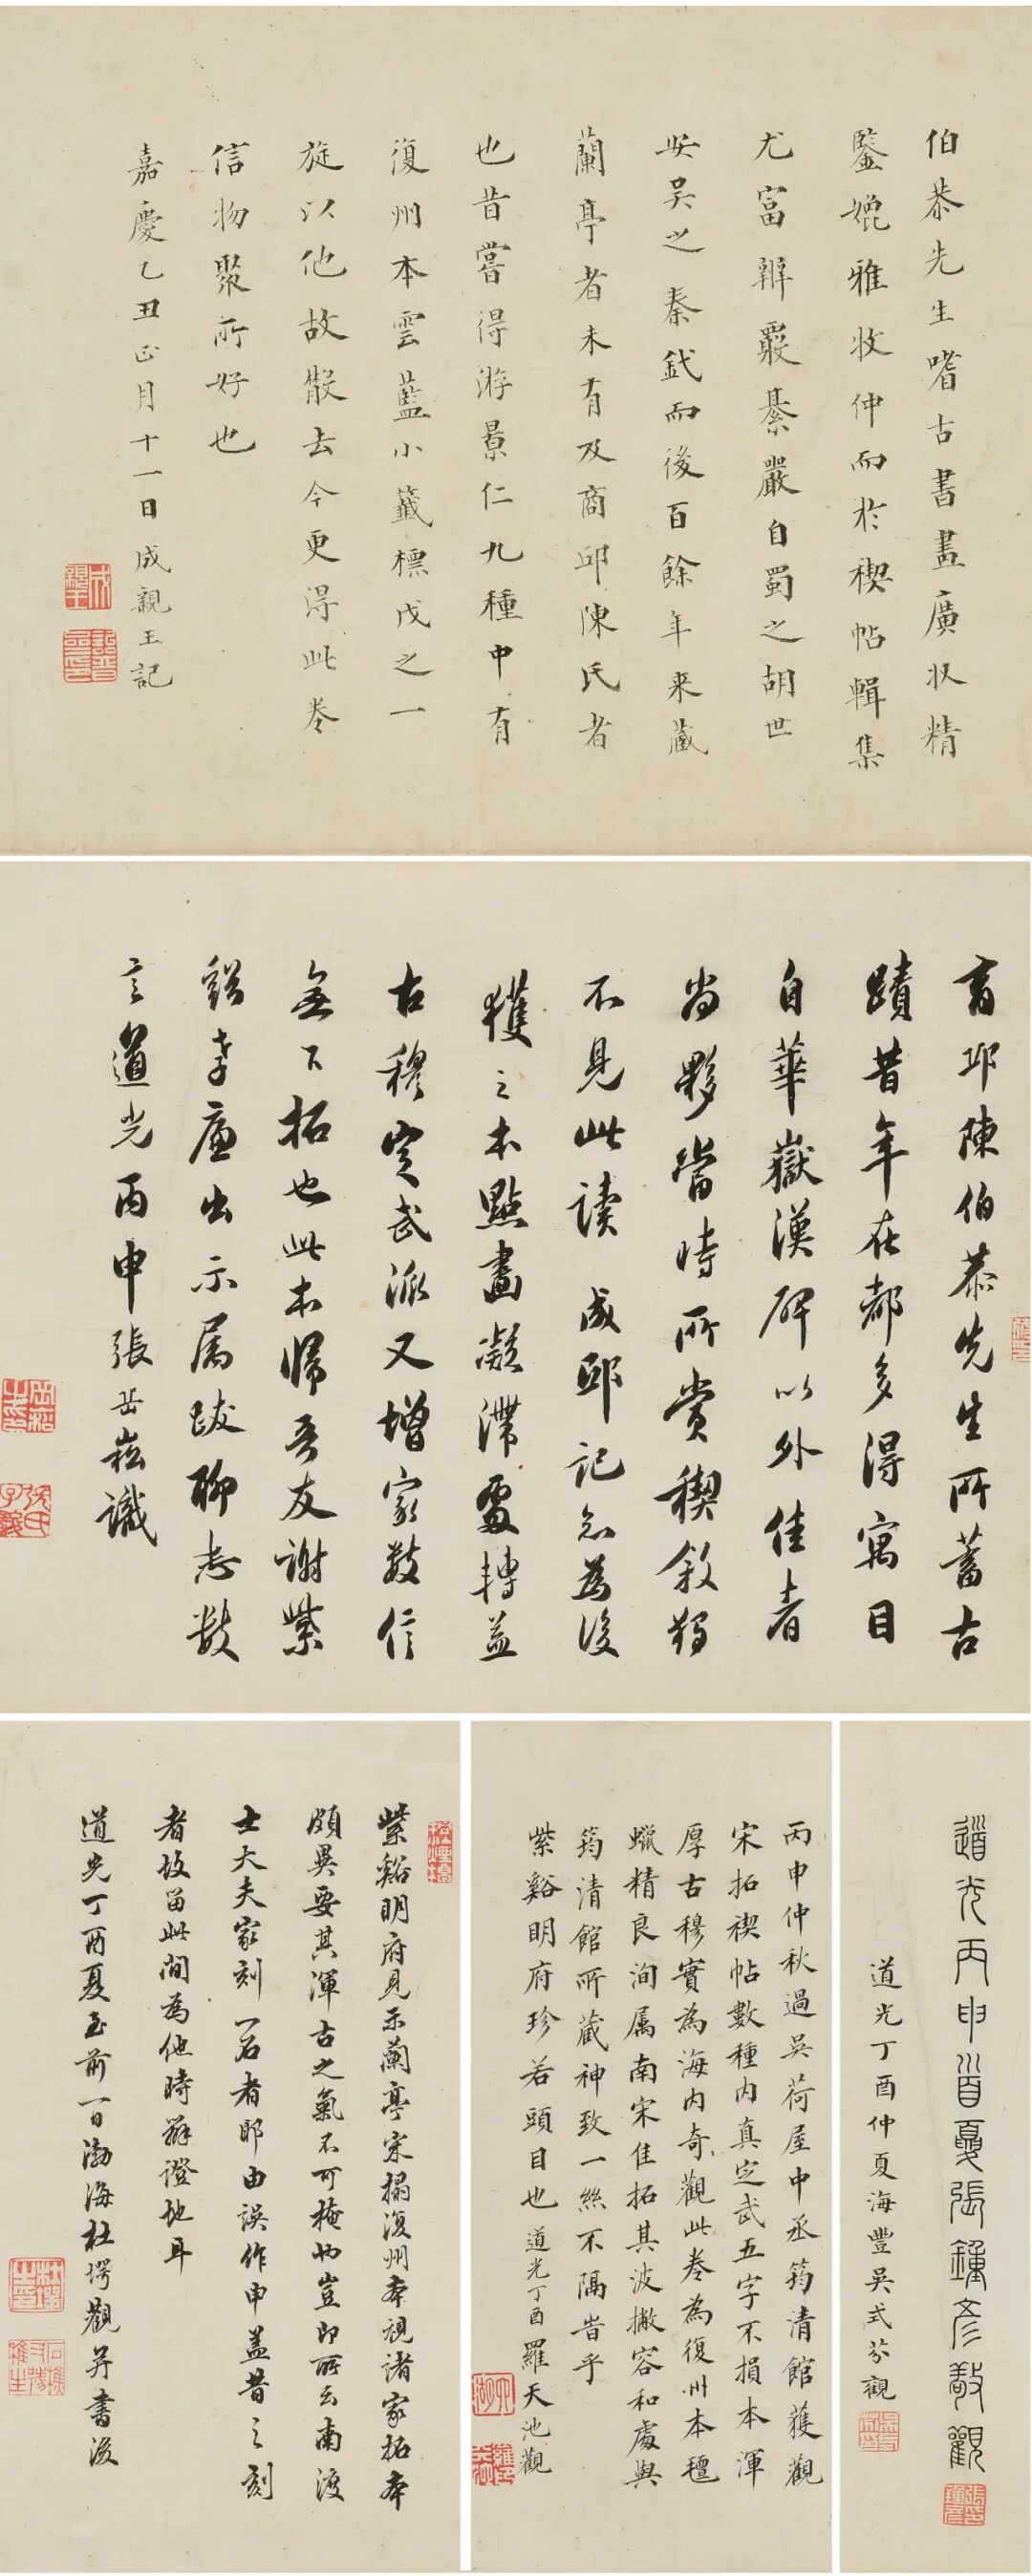 伯恭先生嗜古書畫廣收精
鑒媲雅收仲而於稧帖輯集
尤富辨覈綦嚴自蜀之胡世
安吳之秦鉽而後百餘年来藏
蘭亭者未有及商邱陳氏者
也昔嘗得游景仁九種中有
復州本雲藍小籤標戊之一
旋以他故散去今更得此卷
信物聚所好也
嘉慶乙丑正月十一日成親王記
商邱陳伯恭先生所蓄古
蹟昔年在都多得寓目
自華嶽漢碑以外佳者
尚夥當時所賞稧敘獨
不見此讀 成邸記知為後
獲之本點畫凝潭處轉益
古穆定武派又增家數信
無下拓也此本歸吾友謝紫
谿孝廉出示属跋聊志數
言道光丙申張岳崧識
道光丙申首夏張鐘彥敬觀
道光丁酉仲夏海豐吳式芬觀
丙申仲秋過吳荷屋中丞筠清館獲觀
宋拓稧帖數種内真定武五字不損本渾
厚古穆實為海内奇觀此卷為復州本氊
蠟精良洵属南宋佳拓其波撇容和處與
筠清館所藏神致一絲不隔旹乎
紫谿明府珍若頭目也 道光丁酉羅天池觀
紫谿明府見示蘭亭宋搨復州本視諸家拓本
頗異要其渾古之氣不可掩也豈即所云南渡
士大夫家刻一石者耶由誤作申蓋昔之刻
者故留此間為他時辨證地耳
道光丁酉夏至前一日渤海杜堮觀并書後